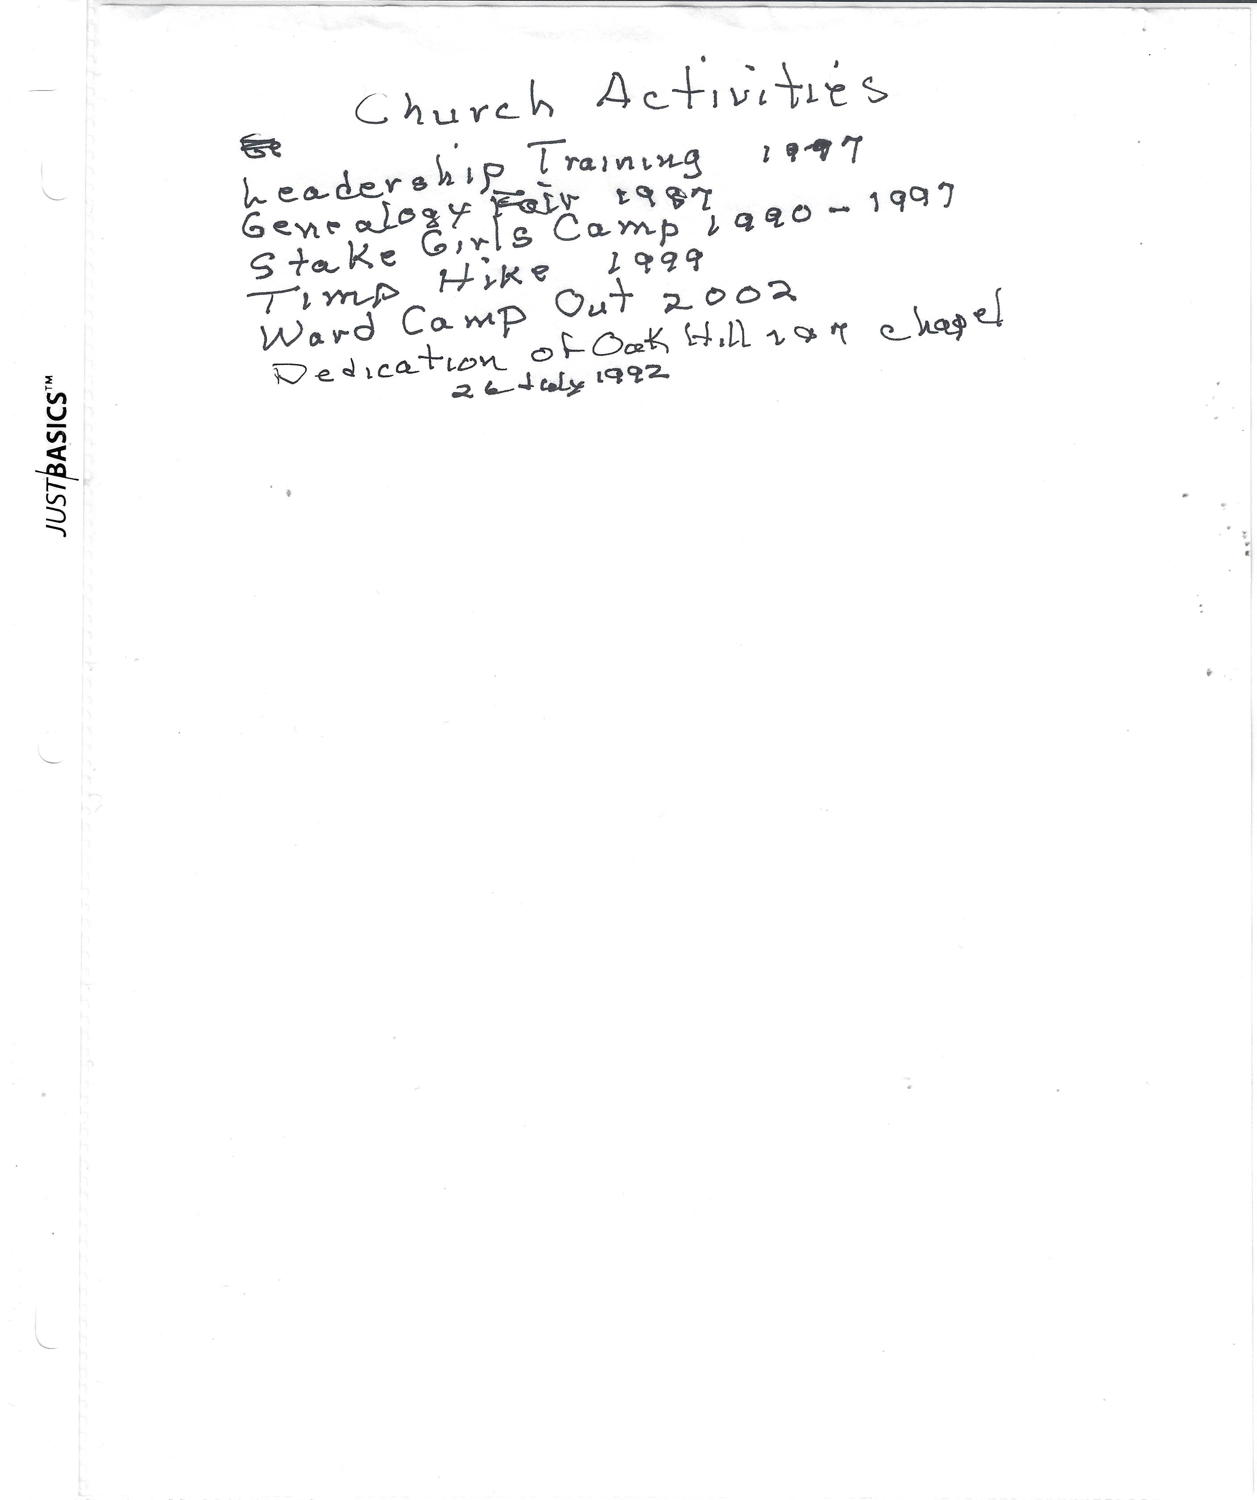 Church Activities
Leadership Training 1997
Genealogy Fair 1987
Stake Girls Camp 1990 - 1997
Timp Hike 1999
Ward Camp Out 2002
Dedication of Oak Hill chapel
26 July 1992
JUST BASICS™